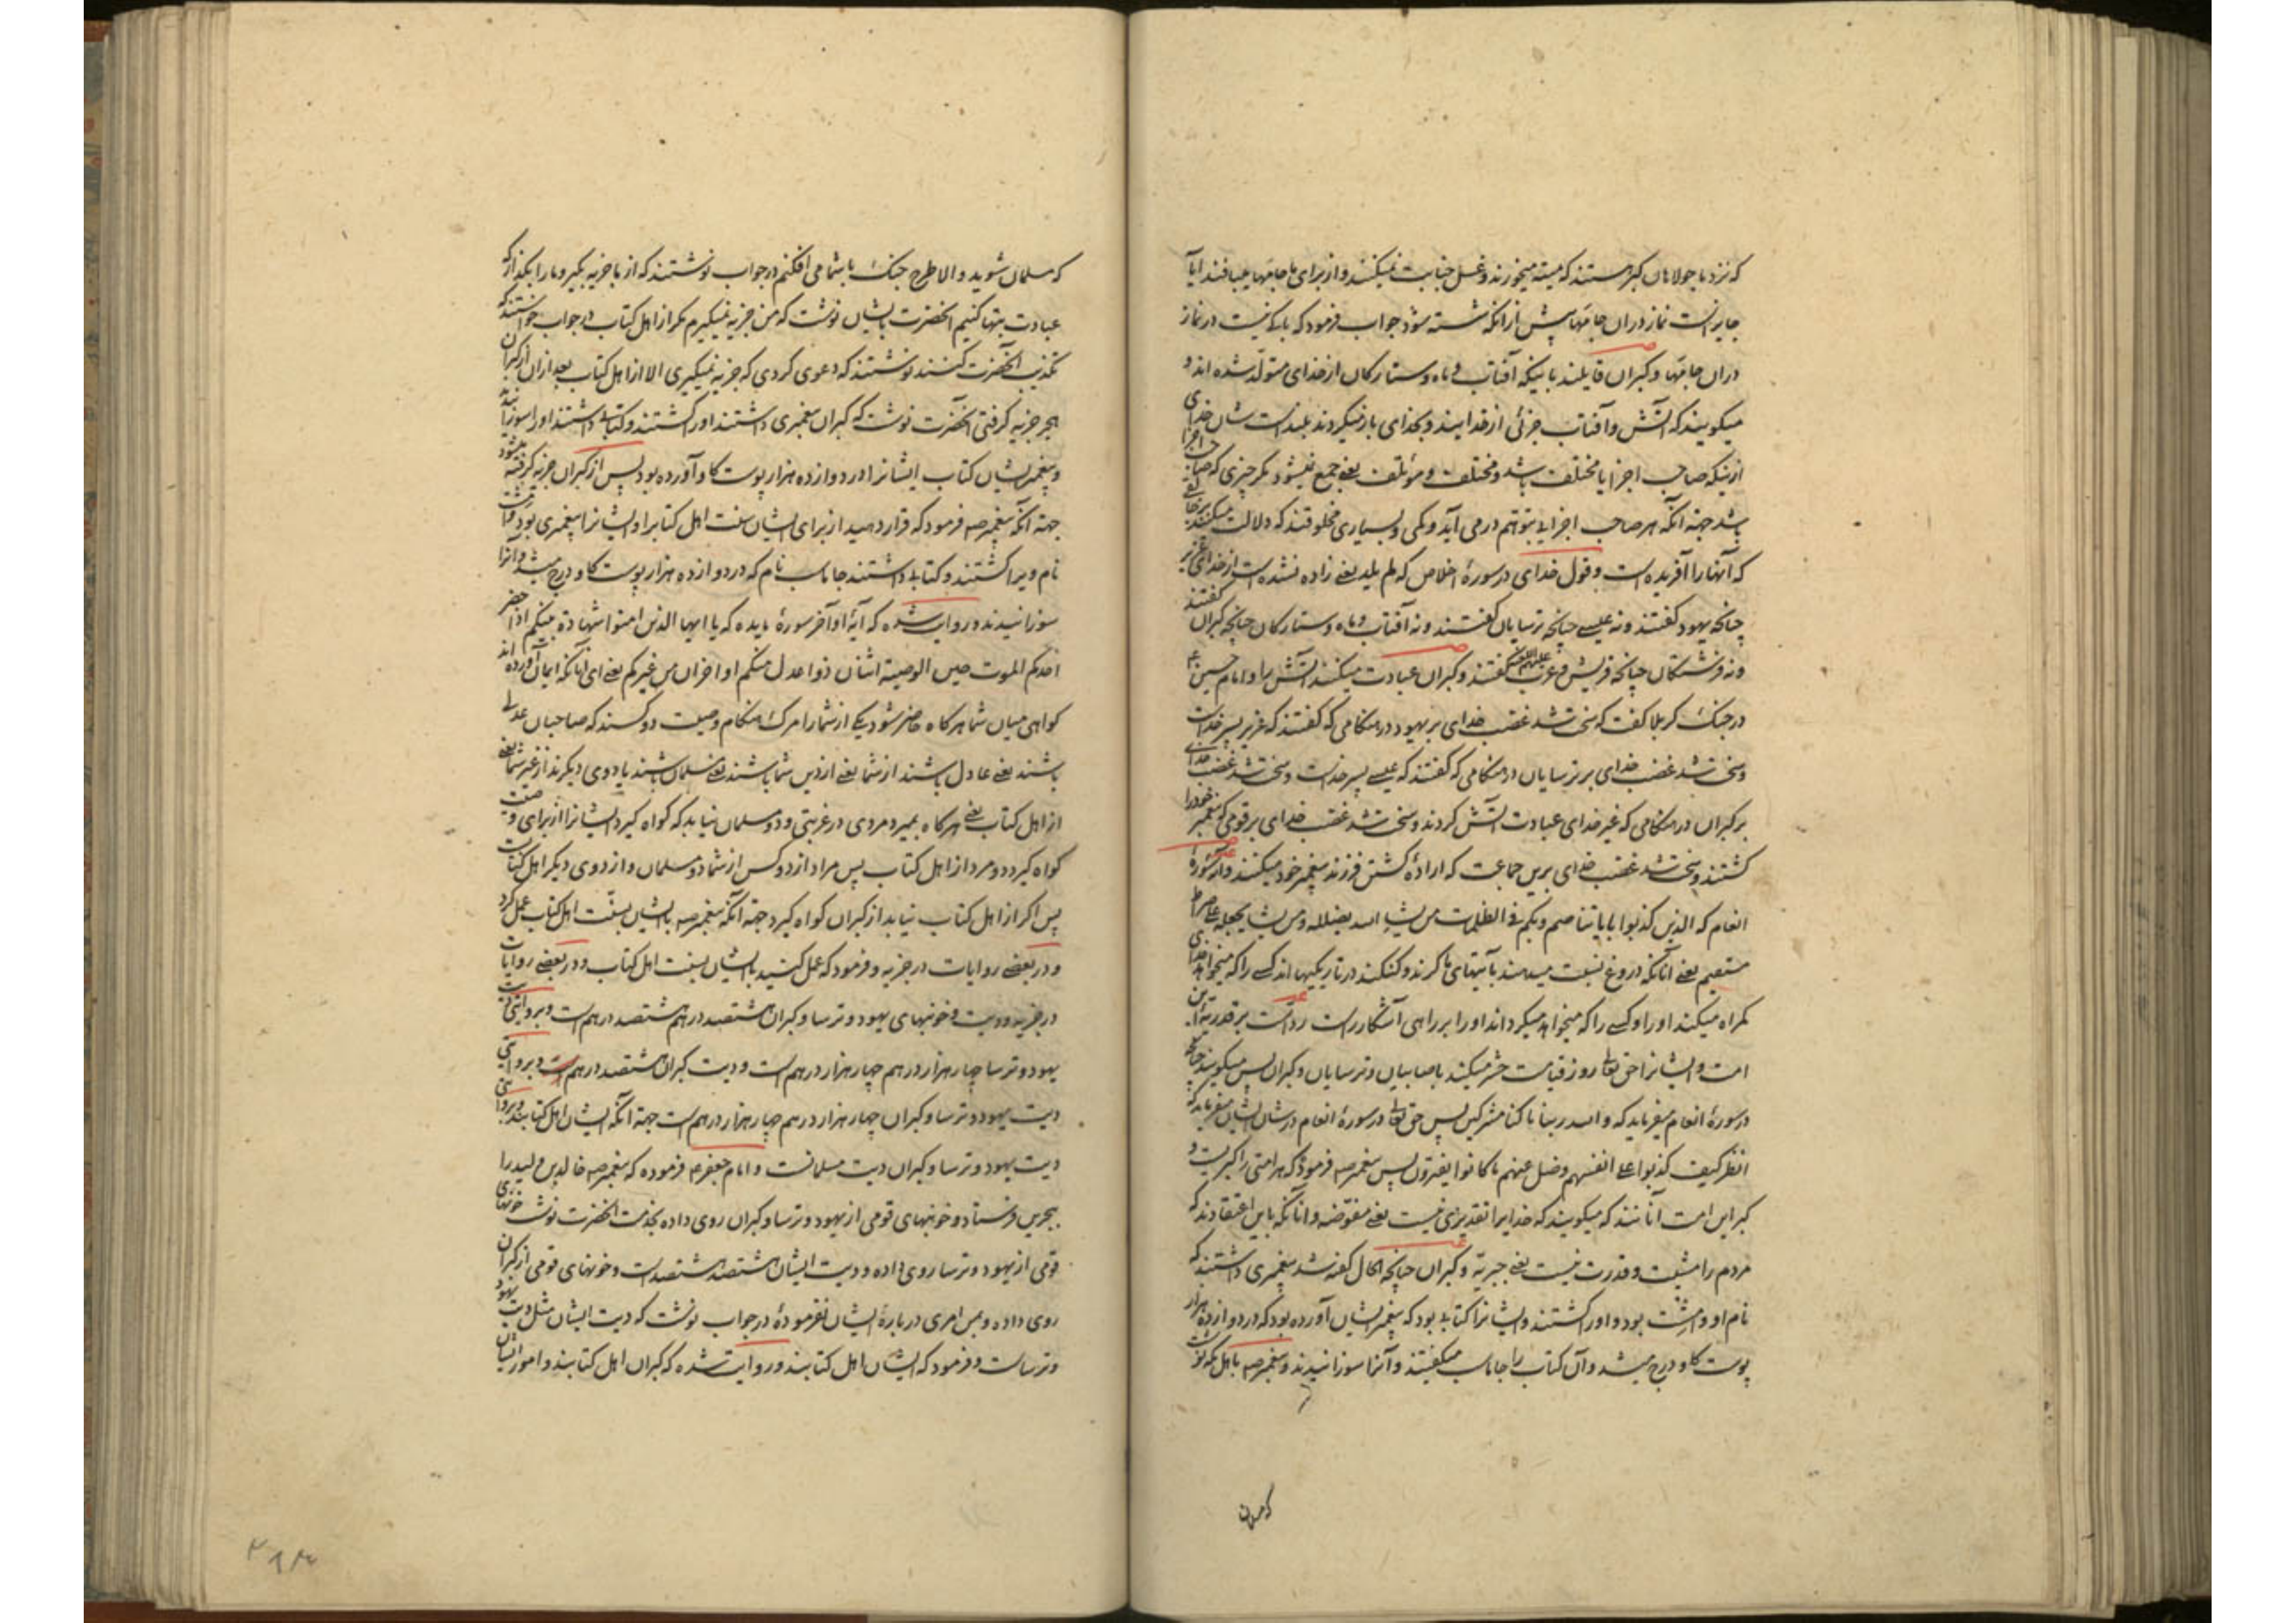 که نزد ما جولاهان کبر هستند که میته میخورند و غسل جنابت نمیکنند و از برای ما جامها میبافند ایا
جایز است نماز در ان جامها پیش از انکه شسته شود جواب فرمود که باکی نیست در نماز
دران جامها و کبران قایلند باینکه آفتاب و ماه و ستارکان از خدای متولد شده اند و
میکویند که آتش و آفتاب جزئی از خدایند و بخدای باز میکردند بلند است شان خدای
ازینکه صاحب اجزا یا مختلف باشد و مختلف و مؤتلف یعنی جمع نمیشود مکر چیزی که صاحب اجزا
باشد جهة آنکه هر صاحب اجزایی بتوهم درمی آید و کمی و بسیاری مخلوقند که دلالت میکنند بر خالقی
که آنها را آفریده است و قول خدای در سورهٔ اخلاص که لم یلد یعنی زاده نشده است از خدای عزیر
چنانچه یهود کفتند و نه عیسی چنانچه ترسایان کفتند و نه آفتاب و ماه و ستارکان چنانچه کبران کفتند
و نه فرشتکان چنانچه قریش و عرب علیهم اللعنه کفتند و کبران عبادت میکنند آتش را و امام حسین ع
در جنک کربلا کفت که سخت شد غضب خدای بر یهود در هنکامی که کفتند که عزیر پسر خداست
و سخت شد غضب خدای بر ترسایان در هنکامی که کفتند که عیسی پسر خداست و سخت شد غضب خدای
بر کبران در هنکامی که غیر خدای عبادت آتش کردند و سخت شد غضب خدای بر قومی که پیغمبر خود را
کشتند و سخت شد غضب خدای برین جماعت که ارادهٔ کشتن فرزند پیغمبر خود میکنند و در سورهٔ
انعام که الذین کذبوا بایاتنا صم و بکم فی الظلمات من یشا الله یضلله و من یشا یجعله علی صراط
مستقیم یعنی آنانکه دروغ نسبت میدهند بآیتهای ما کرند و کنکند در تاریکیها اند کسی را که میخواهد خدای
کمراه میکند او را و کسی را که میخواهد میکرداند او را بر راهی آشکار است رد است بر قدریهٔ این
امت و ایشانرا حق تعالی روز قیامت حشر میکند با صابیان و ترسایان و کبران پس میکویند چنانچه
در سورهٔ انعام میفرماید که و الله ربنا ما کنا مشرکین پس حق تعالی در سورهٔ انعام در شان ایشان میفرماید که
انظر کیف کذبوا علی انفسهم و ضل عنهم ما کانوا یفترون پس پیغمبر صه فرمود که هر امتی را کبریست و
کبر این امت آنانند که میکویند که خدایرا تقدیری نیست یعنی مفوّضه و آنانکه باین اعتقادند که
مردم را مشیت و قدرت نیست یعنی جبریّه و کبران چنانچه الحال کفته شد پیغمبری داشتند که
نام او دامشت بود و او را کشتند و ایشانرا کتابی بود که پیغمبر ایشان آورده بود که در دوازده هزار
پوست کاو درج میشد و آن کتاب را جاماسب میکفتند و آنرا سوزانیدند و پیغمبر صه باهل مکه نوشت
که مسلمان شوید و الا طرح جنک با شما می افکنم در جواب نوشتند که از ما جزیه بکیر و ما را بکذار که
عبادت بتها کنیم آنحضرت بایشان نوشت که من جزیه نمیکیرم مکر از اهل کتاب در جواب خواستند که
تکذیب آنحضرت کنند نوشتند که دعوی کردی که جزیه نمیکیری الا از اهل کتاب بعد از ان از کبران
هجر جزیه کرفتی آنحضرت نوشت که کبران پیغمبری داشتند او را کشتند و کتابی داشتند او را سوزانیدند
و پیغمبر ایشان کتاب ایشانرا در دوازده هزار پوست کاو آورده بود پس از کبران جزیه کرفته میشود
جهة آنکه پیغمبر صه فرمود که قرار دهید از برای ایشان سنت اهل کتابرا و ایشانرا پیغمبری بود دامشت
نام ویرا کشتند و کتابی داشتند جاماسب نام که در دوازده هزار پوست کاو درج میشد و آنرا
سوزانیدند و روایت شده که آیهٔ اواخر سورهٔ مایده که یا ایها الذین امنوا شهادة بینکم اذا حضر
احدکم الموت حین الوصیة اثنان ذوا عدل منکم او اخران من غیرکم یعنی ای آنانکه ایمان آورده اند
کواهی میان شما هرکاه حاضر شود یکی از شما را مرک هنکام وصیت دو کسند که صاحبان عدل
باشند یعنی عادل باشند از شما یعنی از دین شما باشند یعنی مسلمان باشند یا دوی دیکرند از غیر شما یعنی
از اهل کتاب یعنی هرکاه بمیرد مردی در غربتی و دو مسلمان نیابد که کواه کیرد ایشانرا از برای وصیت
کواه کیرد دو مرد از اهل کتاب پس مراد از دو کس از شما دو مسلمان و از دوی دیکر اهل کتابست
پس اکر از اهل کتاب نیابد از کبران کواه کیرد جهة آنکه پیغمبر صه بایشان بسنّت اهل کتاب عمل کرد
و در بعضی روایات در جزیه و فرمود که عمل کنید بایشان بسنت اهل کتاب و در بعضی روایات
در جزیه و دیت و خونبهای یهود و ترسا و کبران هشتصد درهم هشتصد درهم است و بروایتی دیت
یهود و ترسا چهار هزار درهم چهار هزار درهم است و دیت کبران هشتصد درهم است و بروایتی
دیت یهود و ترسا و کبران چهار هزار درهم چهار هزار درهم است جهة آنکه ایشان اهل کتابند و بروایتی
دیت یهود و ترسا و کبران دیت مسلمانست و امام جعفر ع فرموده که پیغمبر صه خالد بن ولید را
ببحرین فرستاد و خونبهای قومی از یهود و ترسا و کبران روی داده بخدمت آنحضرت نوشت خونبهای
قومی از یهود و ترسا روی داده و دیت ایشان هشتصد هشتصد است و خونبهای قومی از کبران
روی داده و بمن امری دربارهٔ ایشان نفرمودهٔ در جواب نوشت که دیت ایشان مثل دیت یهود
و ترساست و فرمود که ایشان اهل کتابند و روایت شده که کبران اهل کتابند و امور ایشان
۲۸۳